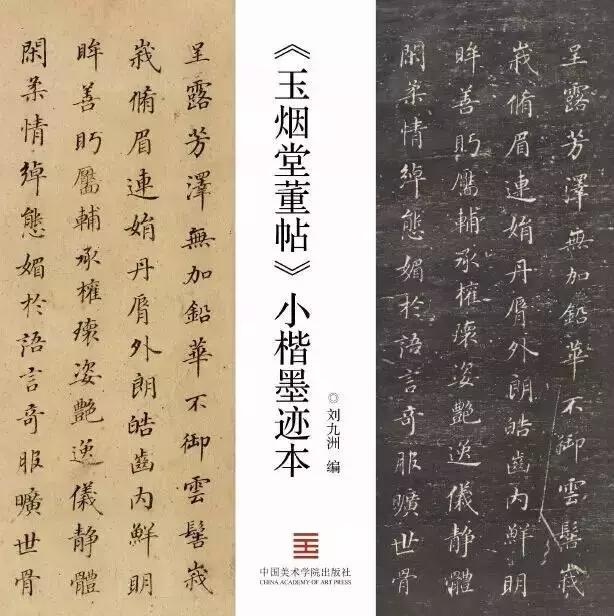 呈露芳澤無加鉛華不御雲髻峩
峩脩眉連娟丹脣外朗皓齒内鮮明
眸善眄靨輔承權瓌姿艷逸儀靜體
閑柔情綽態媚於語言奇服曠世骨
《玉烟堂董帖》小楷墨迹本
◎刘九洲 编
中国美术学院出版社
CHINA ACADEMY OF ART PRESS
呈露芳澤無加鉛華不御雲髻峩
峩脩眉連娟丹脣外朗皓齒内鮮明
眸善眄靨輔承權瓌姿艷逸儀靜體
閑柔情綽態媚於語言奇服曠世骨